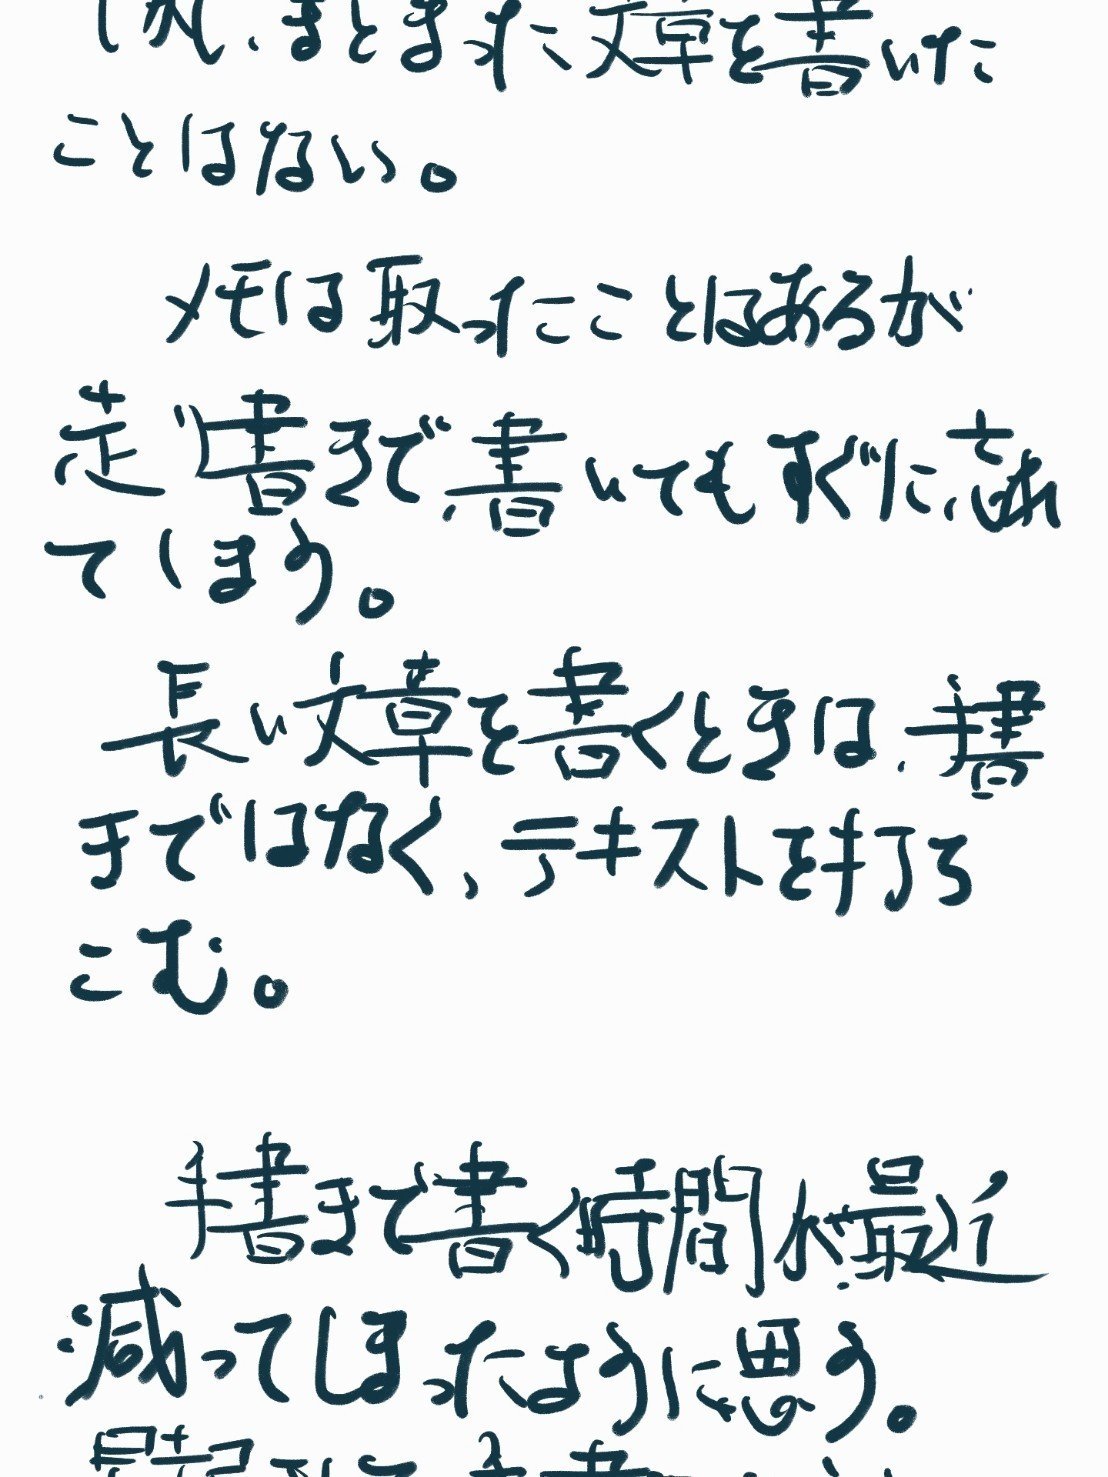 、まとまった文章を書いた
ことはない。
メモは取ったことはあるが
走り書きで、書いてもすぐに、忘れ
てしまう。
長い文章を書くときは、手書
きではなく、テキストを打ち
こむ。
手書きで書く時間が最近
減ってしまったように思う。